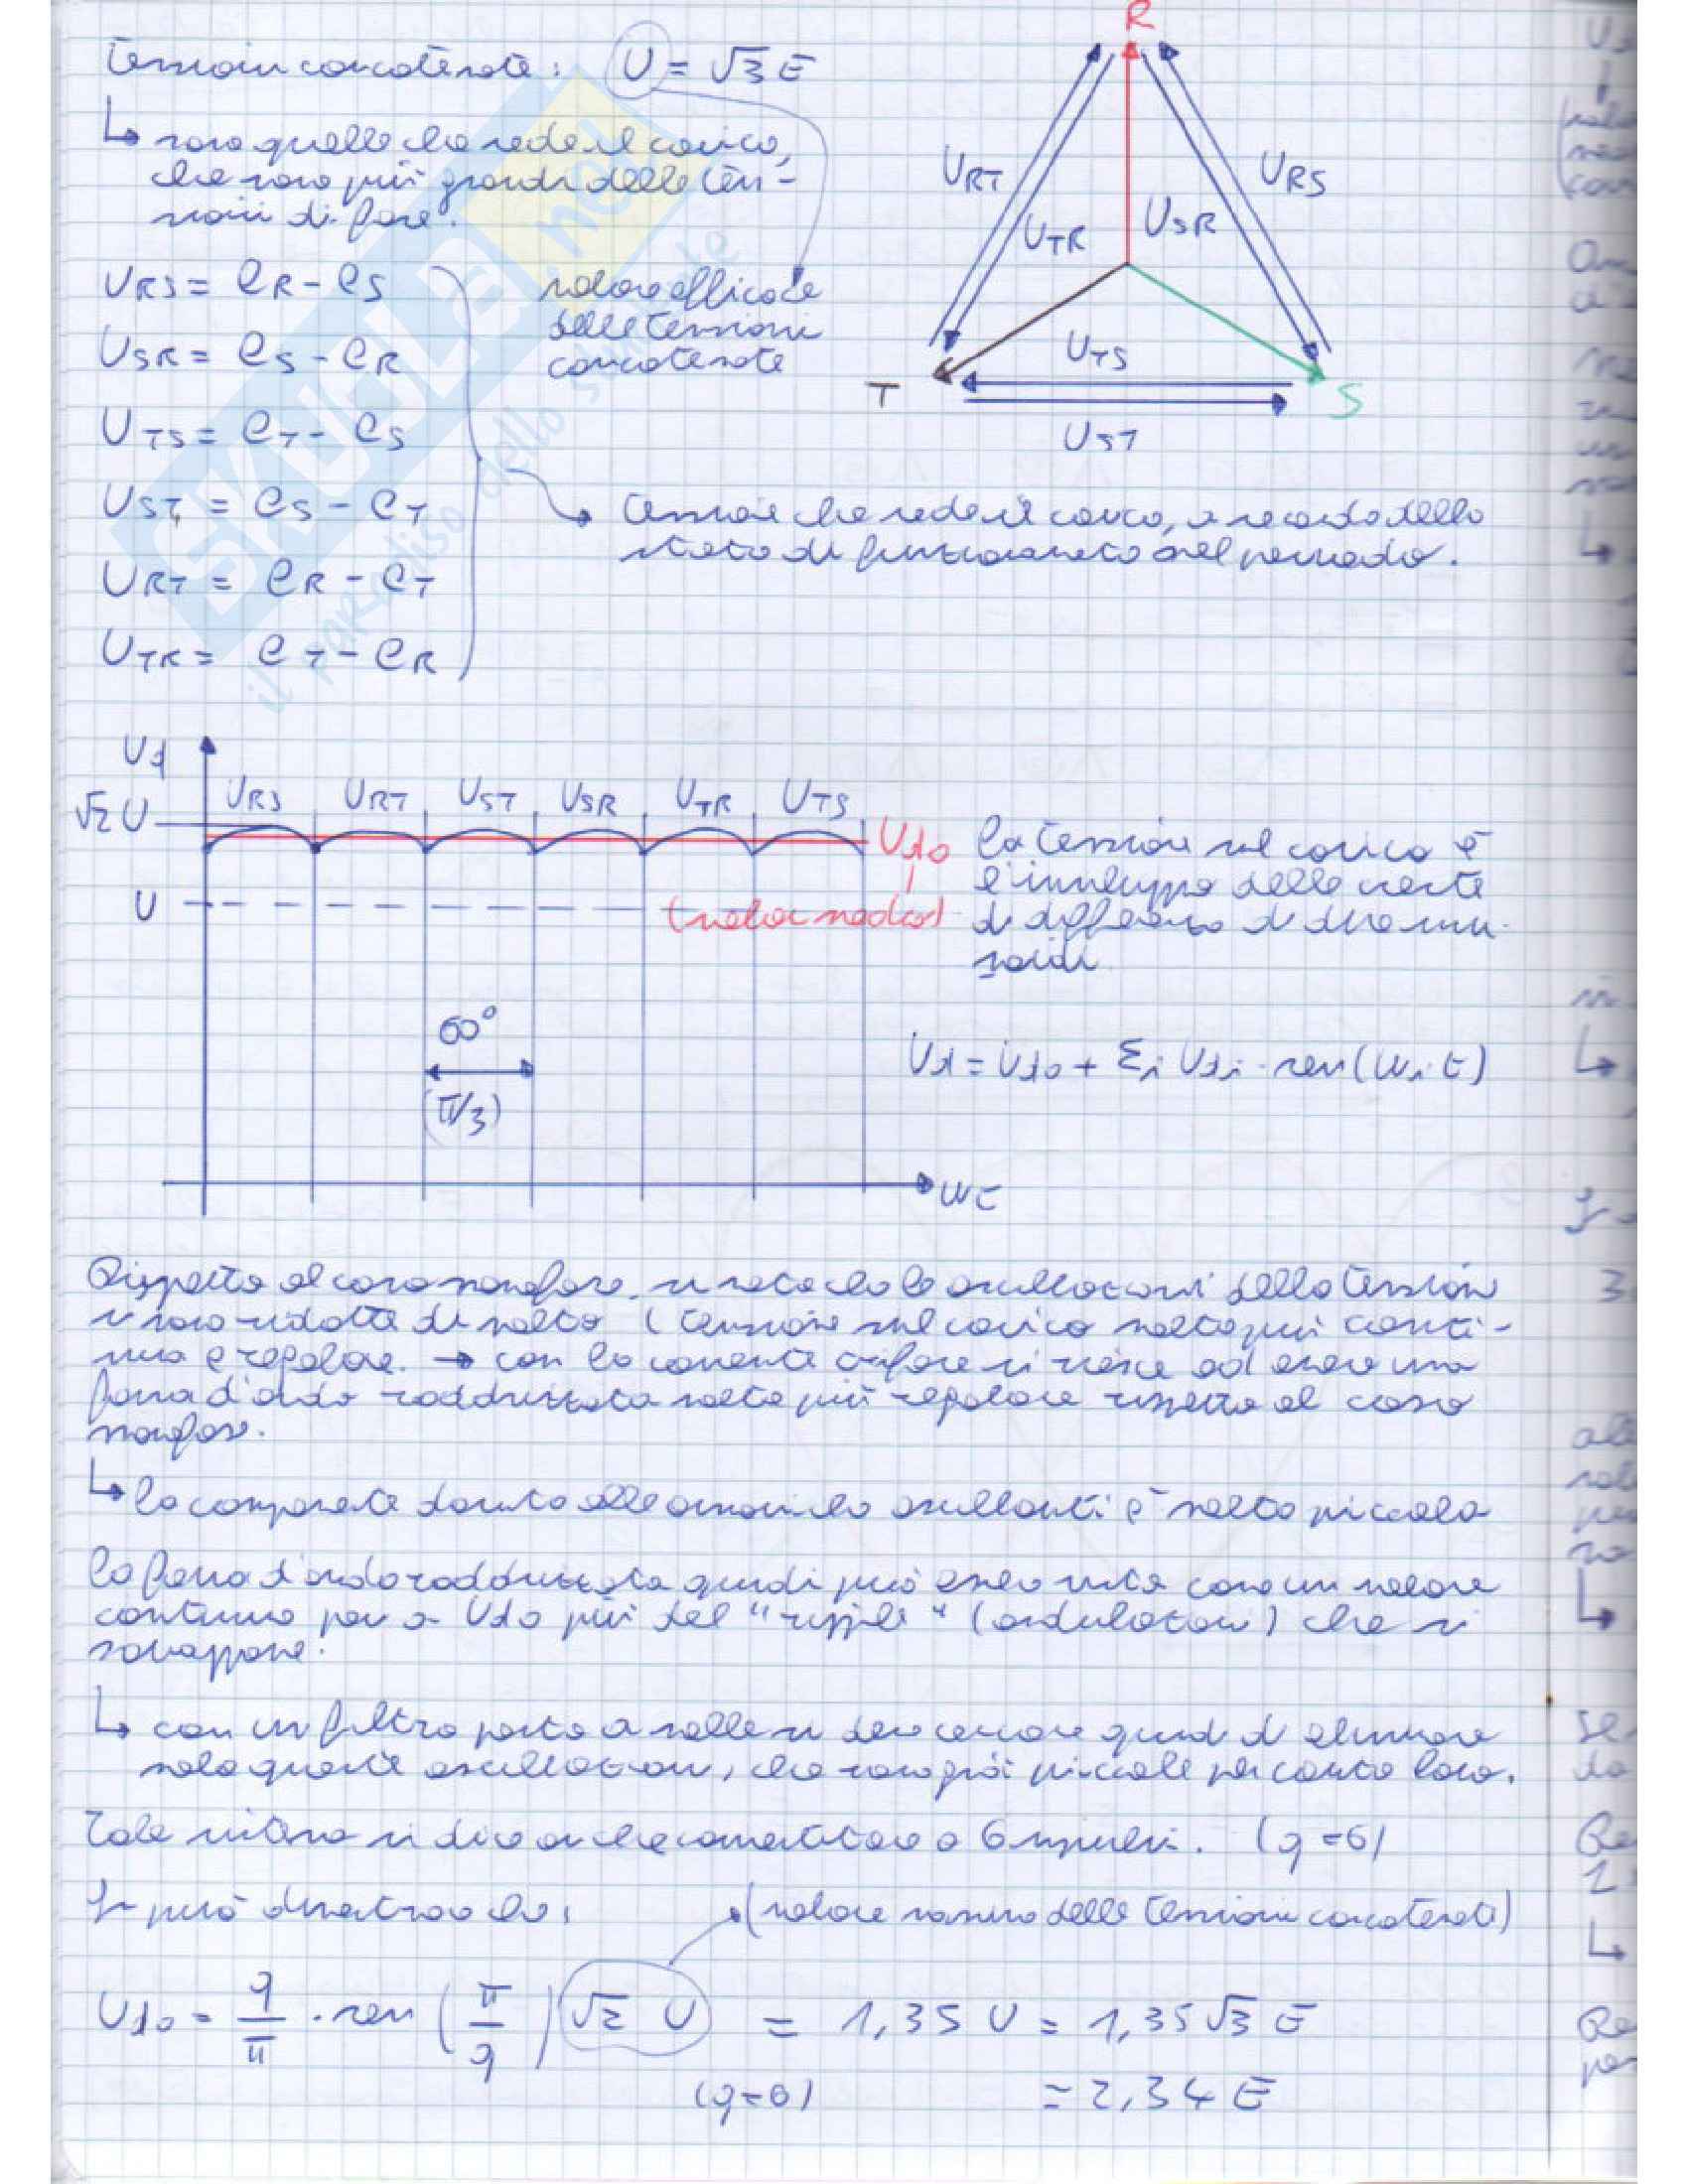 Tensioni concatenate: U = √3 E
↳ sono quelle che vede il carico,
che sono più grandi delle ten-
sioni di fase.
URS = eR - eS
USR = eS - eR
UTS = eT - eS
UST = eS - eT
URT = eR - eT
UTR = eT - eR
valore efficace
delle tensioni
concatenate
R
URT
URS
UTR
USR
UTS
T
S
UST
tensione che vede il carico, a seconda dello
stato di funzionamento nel periodo.
SKUOLA.net
il paradiso dello studente
Ud
√2 U
URS URT UST USR UTR UTS
Ud0
(valor medio)
U
60°
(π/3)
ωt
la tensione sul carico è
l'inviluppo delle creste
di differenza di due sinu-
soidi
Ud = Ud0 + Σi Udi · sen(ωi t)
Rispetto al caso monofase si nota che le oscillazioni della tensione
si sono ridotte di molto (tensione sul carico molto più conti-
nua e regolare. → con la corrente trifase si riesce ad avere una
forma d'onda raddrizzata molto più regolare rispetto al caso
monofase.
↳ la componente dovuta alle armoniche oscillanti è molto piccola
La forma d'onda raddrizzata quindi può essere vista come un valore
continuo pari a Ud0 più del "ripple" (ondulazioni) che si
sovrappone.
↳ con un filtro posto a valle si deve cercare quindi di eliminare
solo queste oscillazioni, che sono già piccole per conto loro.
Tale sistema si dice anche convertitore a 6 impulsi. (q=6)
Si può dimostrare che:
(valore massimo delle tensioni concatenate)
Ud0 = q/π · sen (π/q) √2 U = 1,35 U = 1,35 √3 E
(q=6) = 2,34 E